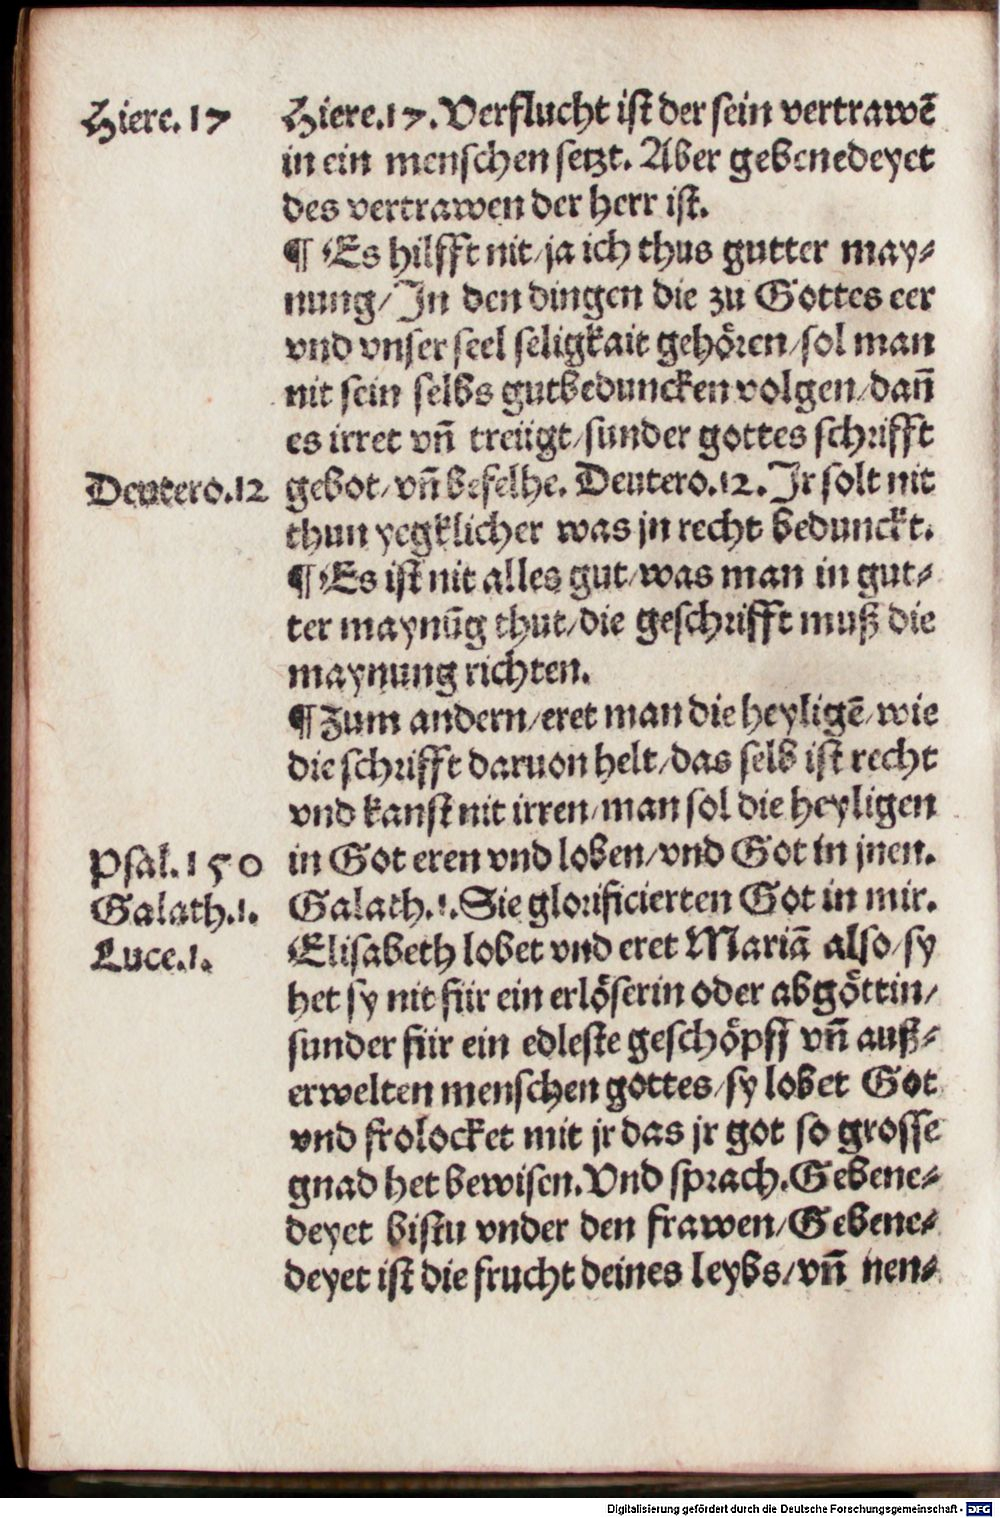 Hiere. 17
Hiere. 17. Verflucht ist der sein vertrawē
in ein menschen setzt. Aber gebenedeyet
des vertrawen der herr ist.
¶ Es hilfft nit/ ja ich thus gutter may⸗
nung/ In den dingen die zu Gottes eer
vnd vnser seel seligkait gehören/ sol man
nit sein selbs gutbeduncken volgen/ dañ
es irret vñ treügt/ sunder gottes schrifft
Deutero. 12
gebot/ vñ befelhe. Deutero. 12. Ir solt nit
thun yegklicher was jn recht bedunckt.
¶ Es ist nit alles gut/ was man in gut⸗
ter maynūg thut/ die geschrifft muß die
maynung richten.
¶ Zum andern/ eret man die heyligē/ wie
die schrifft daruon helt/ das selb ist recht
vnd kanst nit irren/ man sol die heyligen
Psal. 150
in Got eren vnd loben/ vnd Got in jnen.
Galath. 1.
Galath. 1. Sie glorificierten Got in mir.
Luce. 1.
Elisabeth lobet vnd eret Mariā also/ sy
het sy nit für ein erlöserin oder abgöttin/
sunder für ein edleste geschöpff vñ auß⸗
erwelten menschen gottes/ sy lobet Got
vnd frolocket mit jr das jr got so grosse
gnad het bewisen. Vnd sprach. Gebene⸗
deyet bistu vnder den frawen/ Gebene⸗
deyet ist die frucht deines leybs/ vñ nen⸗
Digitalisierung gefördert durch die Deutsche Forschungsgemeinschaft - DFG